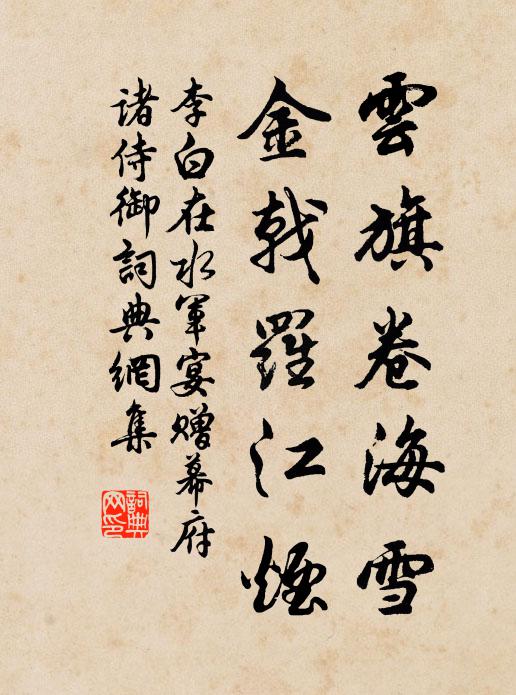 雲旗卷海雪
金戟羅江煙
李白在水軍宴贈幕府
諸侍御詞典網集
詞典网印